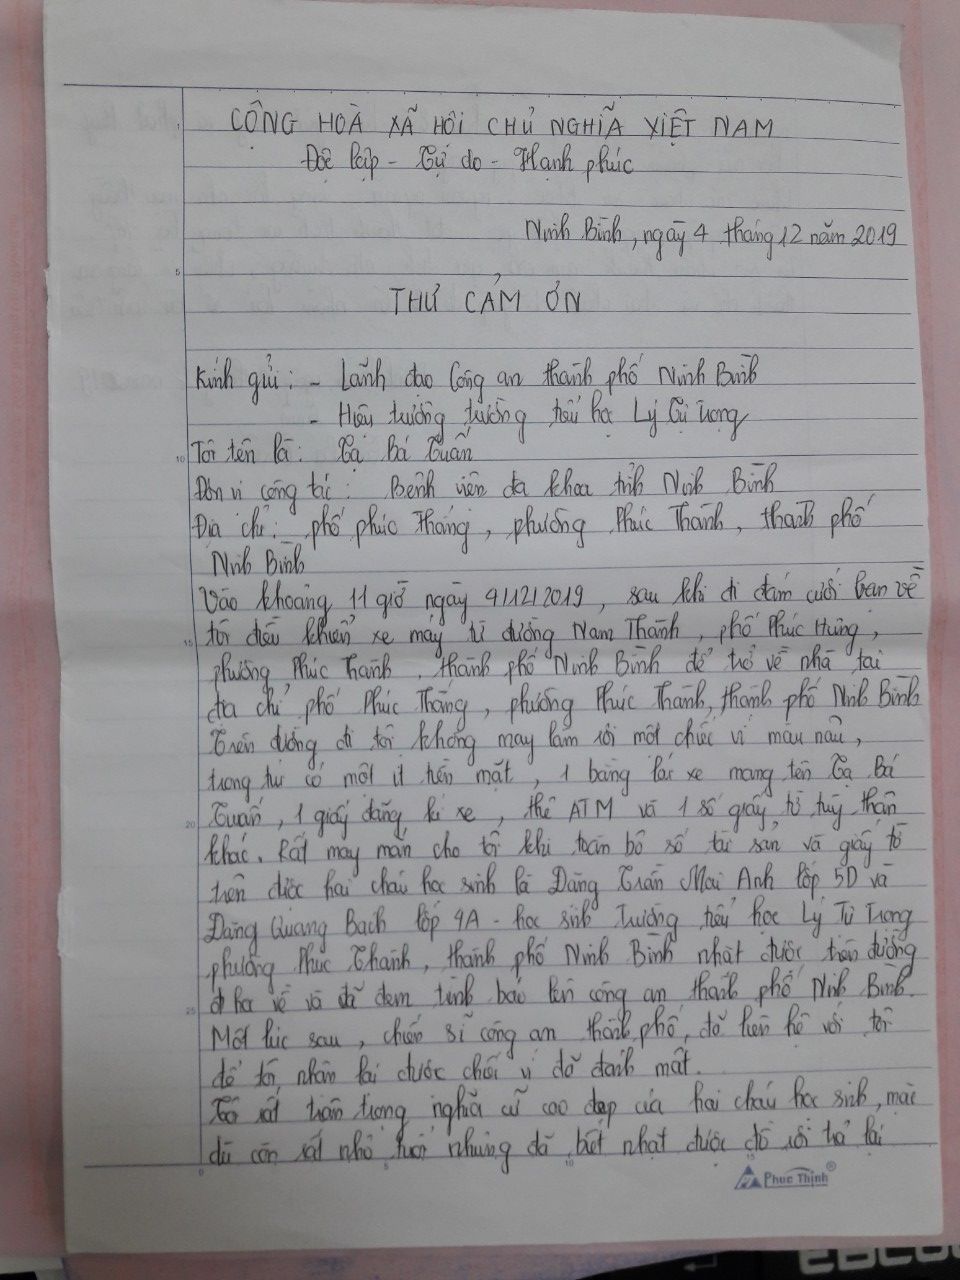 CỘNG HOÀ XÃ HỘI CHỦ NGHĨA VIỆT NAM
Độc lập - Tự do - Hạnh phúc
Ninh Bình, ngày 4 tháng 12 năm 2019
THƯ CẢM ƠN
Kính gửi: - Lãnh đạo Công an thành phố Ninh Bình
- Hiệu trưởng trường tiểu học Lý Tự Trọng
Tôi tên là: Tạ Bá Tuấn
Đơn vị công tác: Bệnh viện đa khoa tỉnh Ninh Bình
Địa chỉ: phố phúc Thắng, phường Phúc Thành, thành phố
Ninh Bình
Vào khoảng 11 giờ ngày 4/12/2019, sau khi đi đám cưới bạn về
tôi điều khiển xe máy từ đường Nam Thành, phố Phúc Hưng,
phường Phúc Thành, thành phố Ninh Bình để trở về nhà tại
địa chỉ phố Phúc Thắng, phường Phúc Thành, thành phố Ninh Bình
Trên đường đi tôi không may làm rơi một chiếc ví màu nâu,
trong túi có một ít tiền mặt, 1 bằng lái xe mang tên Tạ Bá
Tuấn, 1 giấy đăng kí xe, thẻ ATM và 1 số giấy tờ tuỳ thân
khác. Rất may mắn cho tôi khi toàn bộ số tài sản và giấy tờ
trên được hai cháu học sinh là Đặng Trần Mai Anh lớp 5D và
Đặng Quang Bách lớp 4A - học sinh Trường tiểu học Lý Tự Trọng
phường Phúc Thành, thành phố Ninh Bình nhặt được trên đường
đi học về và đã đem trình báo lên công an thành phố Ninh Bình.
Một lúc sau, chiến sĩ công an thành phố, đã liên hệ với tôi
để tôi nhận lại được chiếc ví đã đánh mất.
Tôi rất trân trọng nghĩa cử cao đẹp của hai cháu học sinh, mặc
dù còn rất nhỏ tuổi nhưng đã biết nhặt được đồ rơi trả lại
Phuc Thinh®